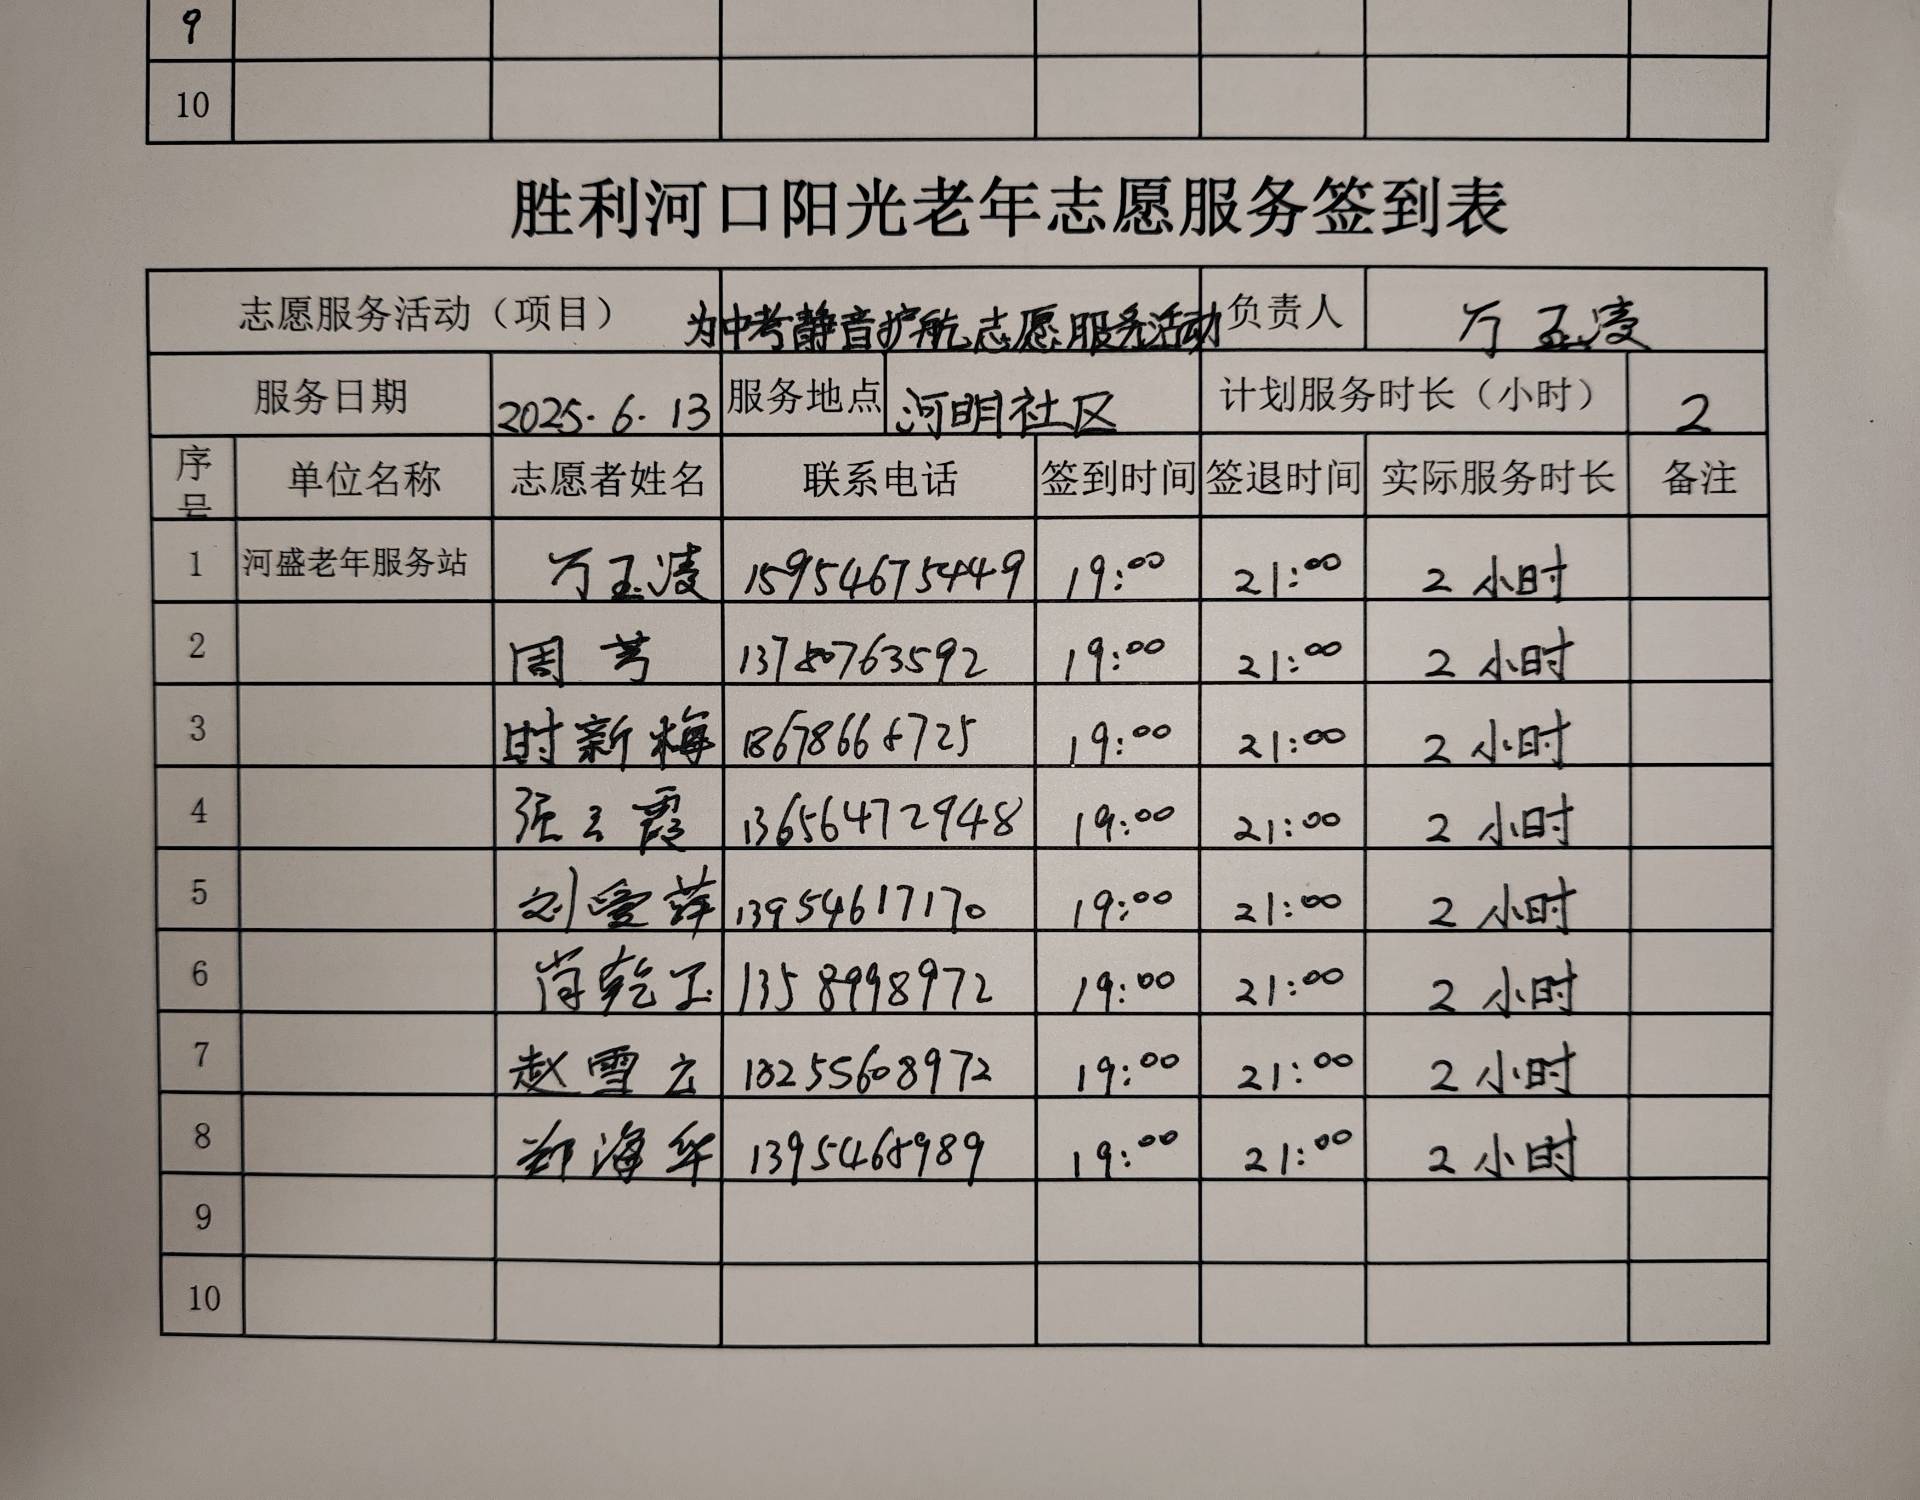 9
10
胜利河口阳光老年志愿服务签到表
志愿服务活动（项目） 为中考静音护航志愿服务活动 负责人 万玉凌
服务日期 2025.6.13 服务地点 河明社区 计划服务时长（小时） 2
序号 单位名称 志愿者姓名 联系电话 签到时间 签退时间 实际服务时长 备注
1 河盛老年服务站 万玉凌 15954675449 19:00 21:00 2小时
2 周芳 13780763592 19:00 21:00 2小时
3 时新梅 19:00 21:00 2小时
4 张云霞 13656472948 19:00 21:00 2小时
5 刘爱萍 13954617170 19:00 21:00 2小时
6 肖乾玉 13589998972 19:00 21:00 2小时
7 赵雪云 18255608972 19:00 21:00 2小时
8 郑海华 19:00 21:00 2小时
9
10